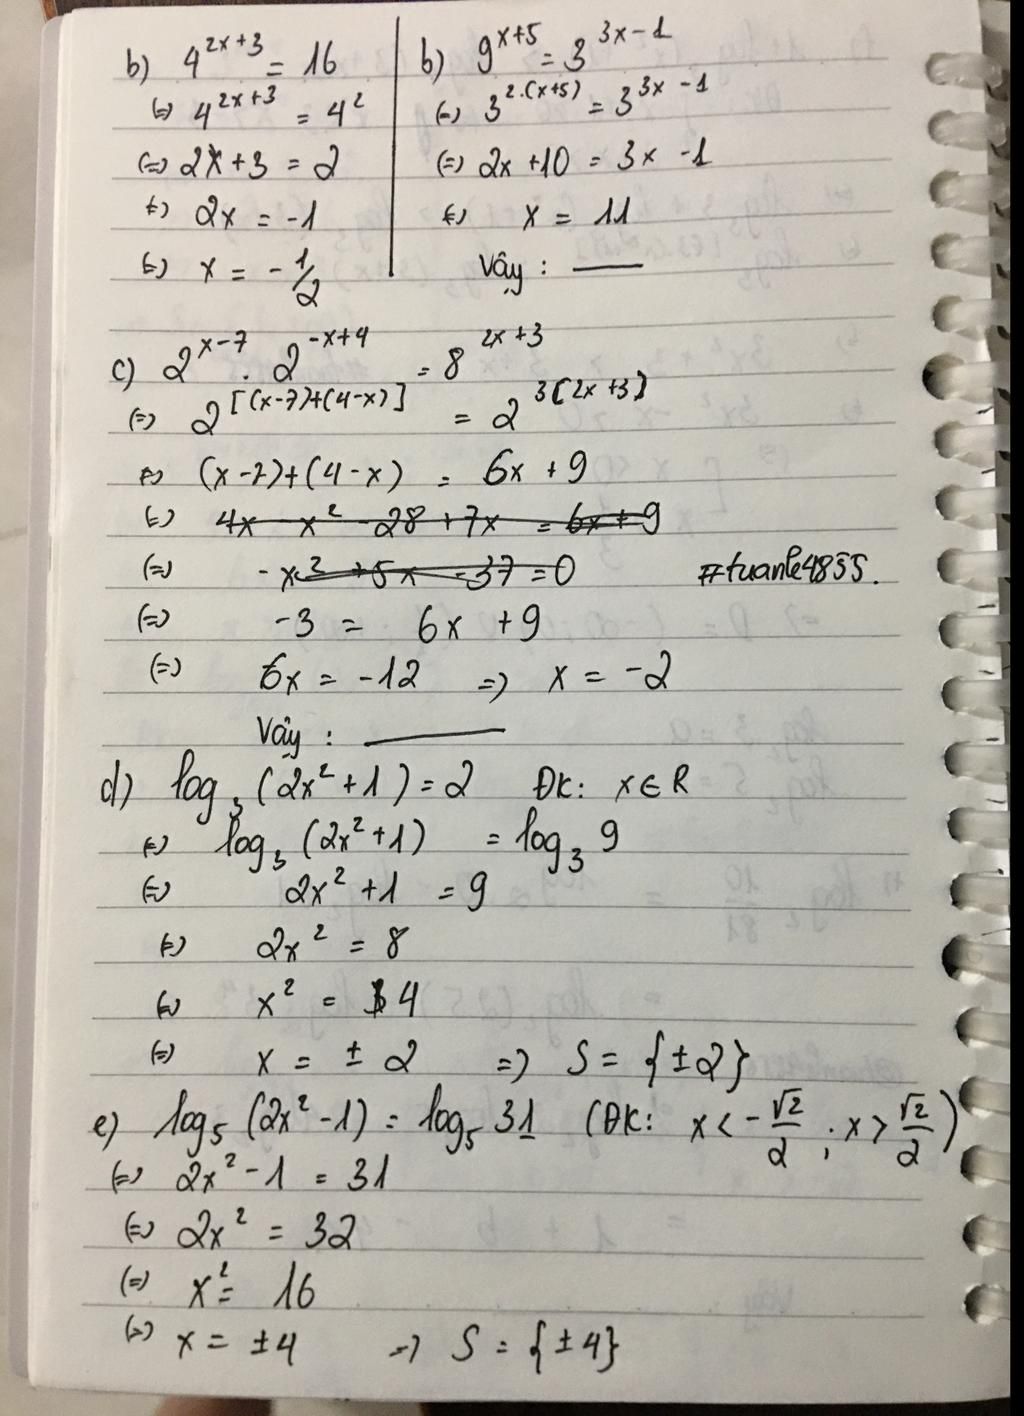 b) 4^{2x+3} = 16
(=) 4^{2x+3} = 4^2
(=) 2x+3 = 2
(=) 2x = -1
(=) x = -1/2
b) 9^{x+5} = 3^{3x-1}
(=) 3^{2.(x+5)} = 3^{3x-1}
(=) 2x +10 = 3x -1
(=) x = 11
Vậy : ——
c) 2^{x-7} . 2^{-x+4} = 8^{2x+3}
(=) 2^{[(x-7)+(4-x)]} = 2^{3[2x+3]}
(=) (x-7)+(4-x) = 6x + 9
(=) 4x - x^2 - 28 + 7x = 6x + 9
(=) -x^2 + 5x - 37 = 0
#tuanle4855.
(=) -3 = 6x + 9
(=) 6x = -12 => x = -2
Vậy : ——
d) log_3 (2x^2+1) = 2 ĐK: x ∈ R
(=) log_3 (2x^2+1) = log_3 9
(=) 2x^2 +1 = 9
(=) 2x^2 = 8
(=) x^2 = 4
(=) x = ± 2 => S = {±2}
e) log_5 (2x^2-1) = log_5 31 (ĐK: x < -√2/2 ; x > √2/2)
(=) 2x^2 - 1 = 31
(=) 2x^2 = 32
(=) x^2 = 16
(=) x = ±4 => S = {±4}